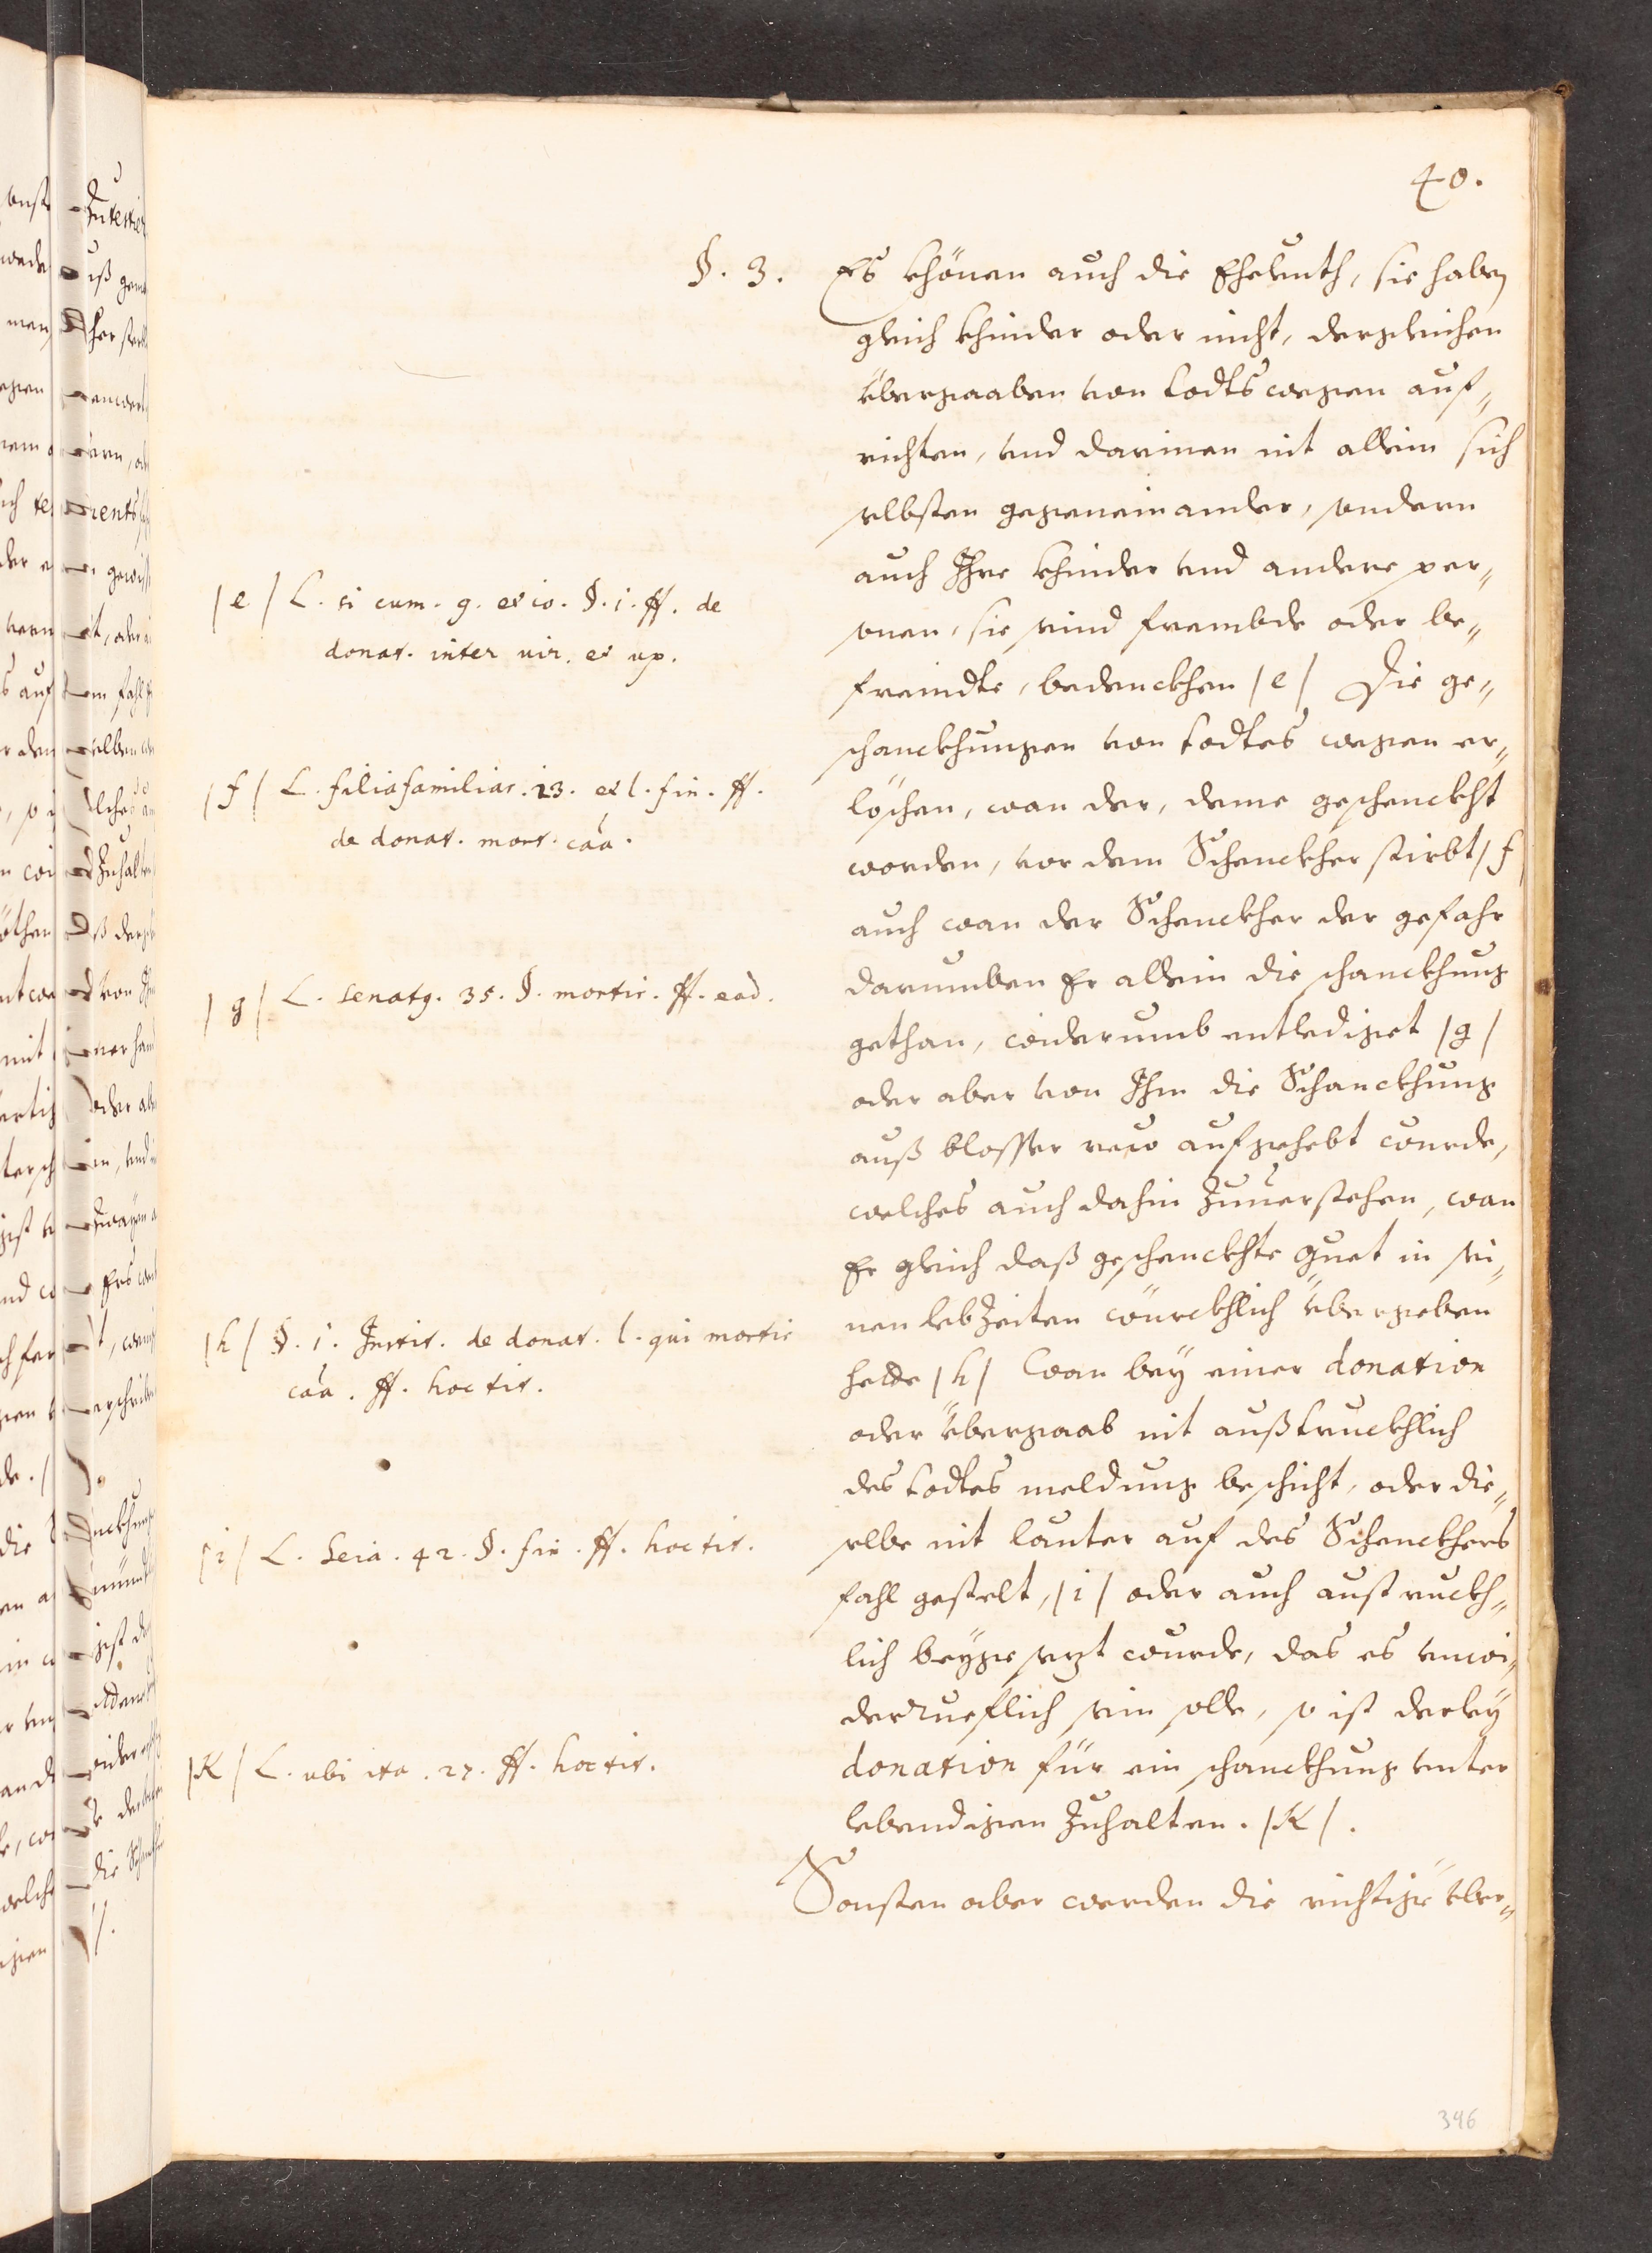 40.
§. 3. Es khönen auch die Eheleuth, sie haben
gleich khinder oder nicht, dergleichen
übergaaben von todts wegen auf„
richten, und darinen nit allein sich
selbsten gegeneinander, sondern
auch Ihre khinder und andere per„
sonen, sie seind frembde oder be„
freindte, bedenckhen /e/ Die ge„
schanckhungen von todtes wegen er„
löschen, wan der, deme geschenckht
worden, vor dem Schenckher stirbt /f/
auch wan der Schenckher der gefahr
darumben Er allein die schanckhung
gethan, widerumb entlediget /g/
oder aber von Ihm die Schanckhung
auß blosser rew aufgehebt wurde,
welches auch dahin zuuerstehen, wan
Er gleich daß geschenckhte guet in sei„
nen lebzeiten würckhlich übergeben
hette /h/ Wan bey einer donation
oder übergaab nit außtruckhlich
des todtes meldung beschicht, oder die„
selbe nit lauter auf des Schenckhers
fahl gestelt, /i/ oder auch austruckh„
lich beygesezt wurde, das es unwi„
derrueflich sein solle, so ist derley
donation für ein schanckhung unter
lebendigen zuhalten. /K/.
Sonsten aber werden die richtige über„
/e/ L. si cum. 9. et io. §. i. ff. de
donat. inter uir. et ux.
/f/ L. filiafamilias. 23. et l. fin. ff.
de donat. mort. caa.
/g/ L. Senatq. 35. §. mortis. ff. eod.
/h/ §. i. Instit. de donat. l. qui mortis
caa. ff. hoc tit.
/i/ L. Seia. 42. §. fin. ff. hoc tit.
/K/ L. ubi ita. 27. ff. hoc tit.
346